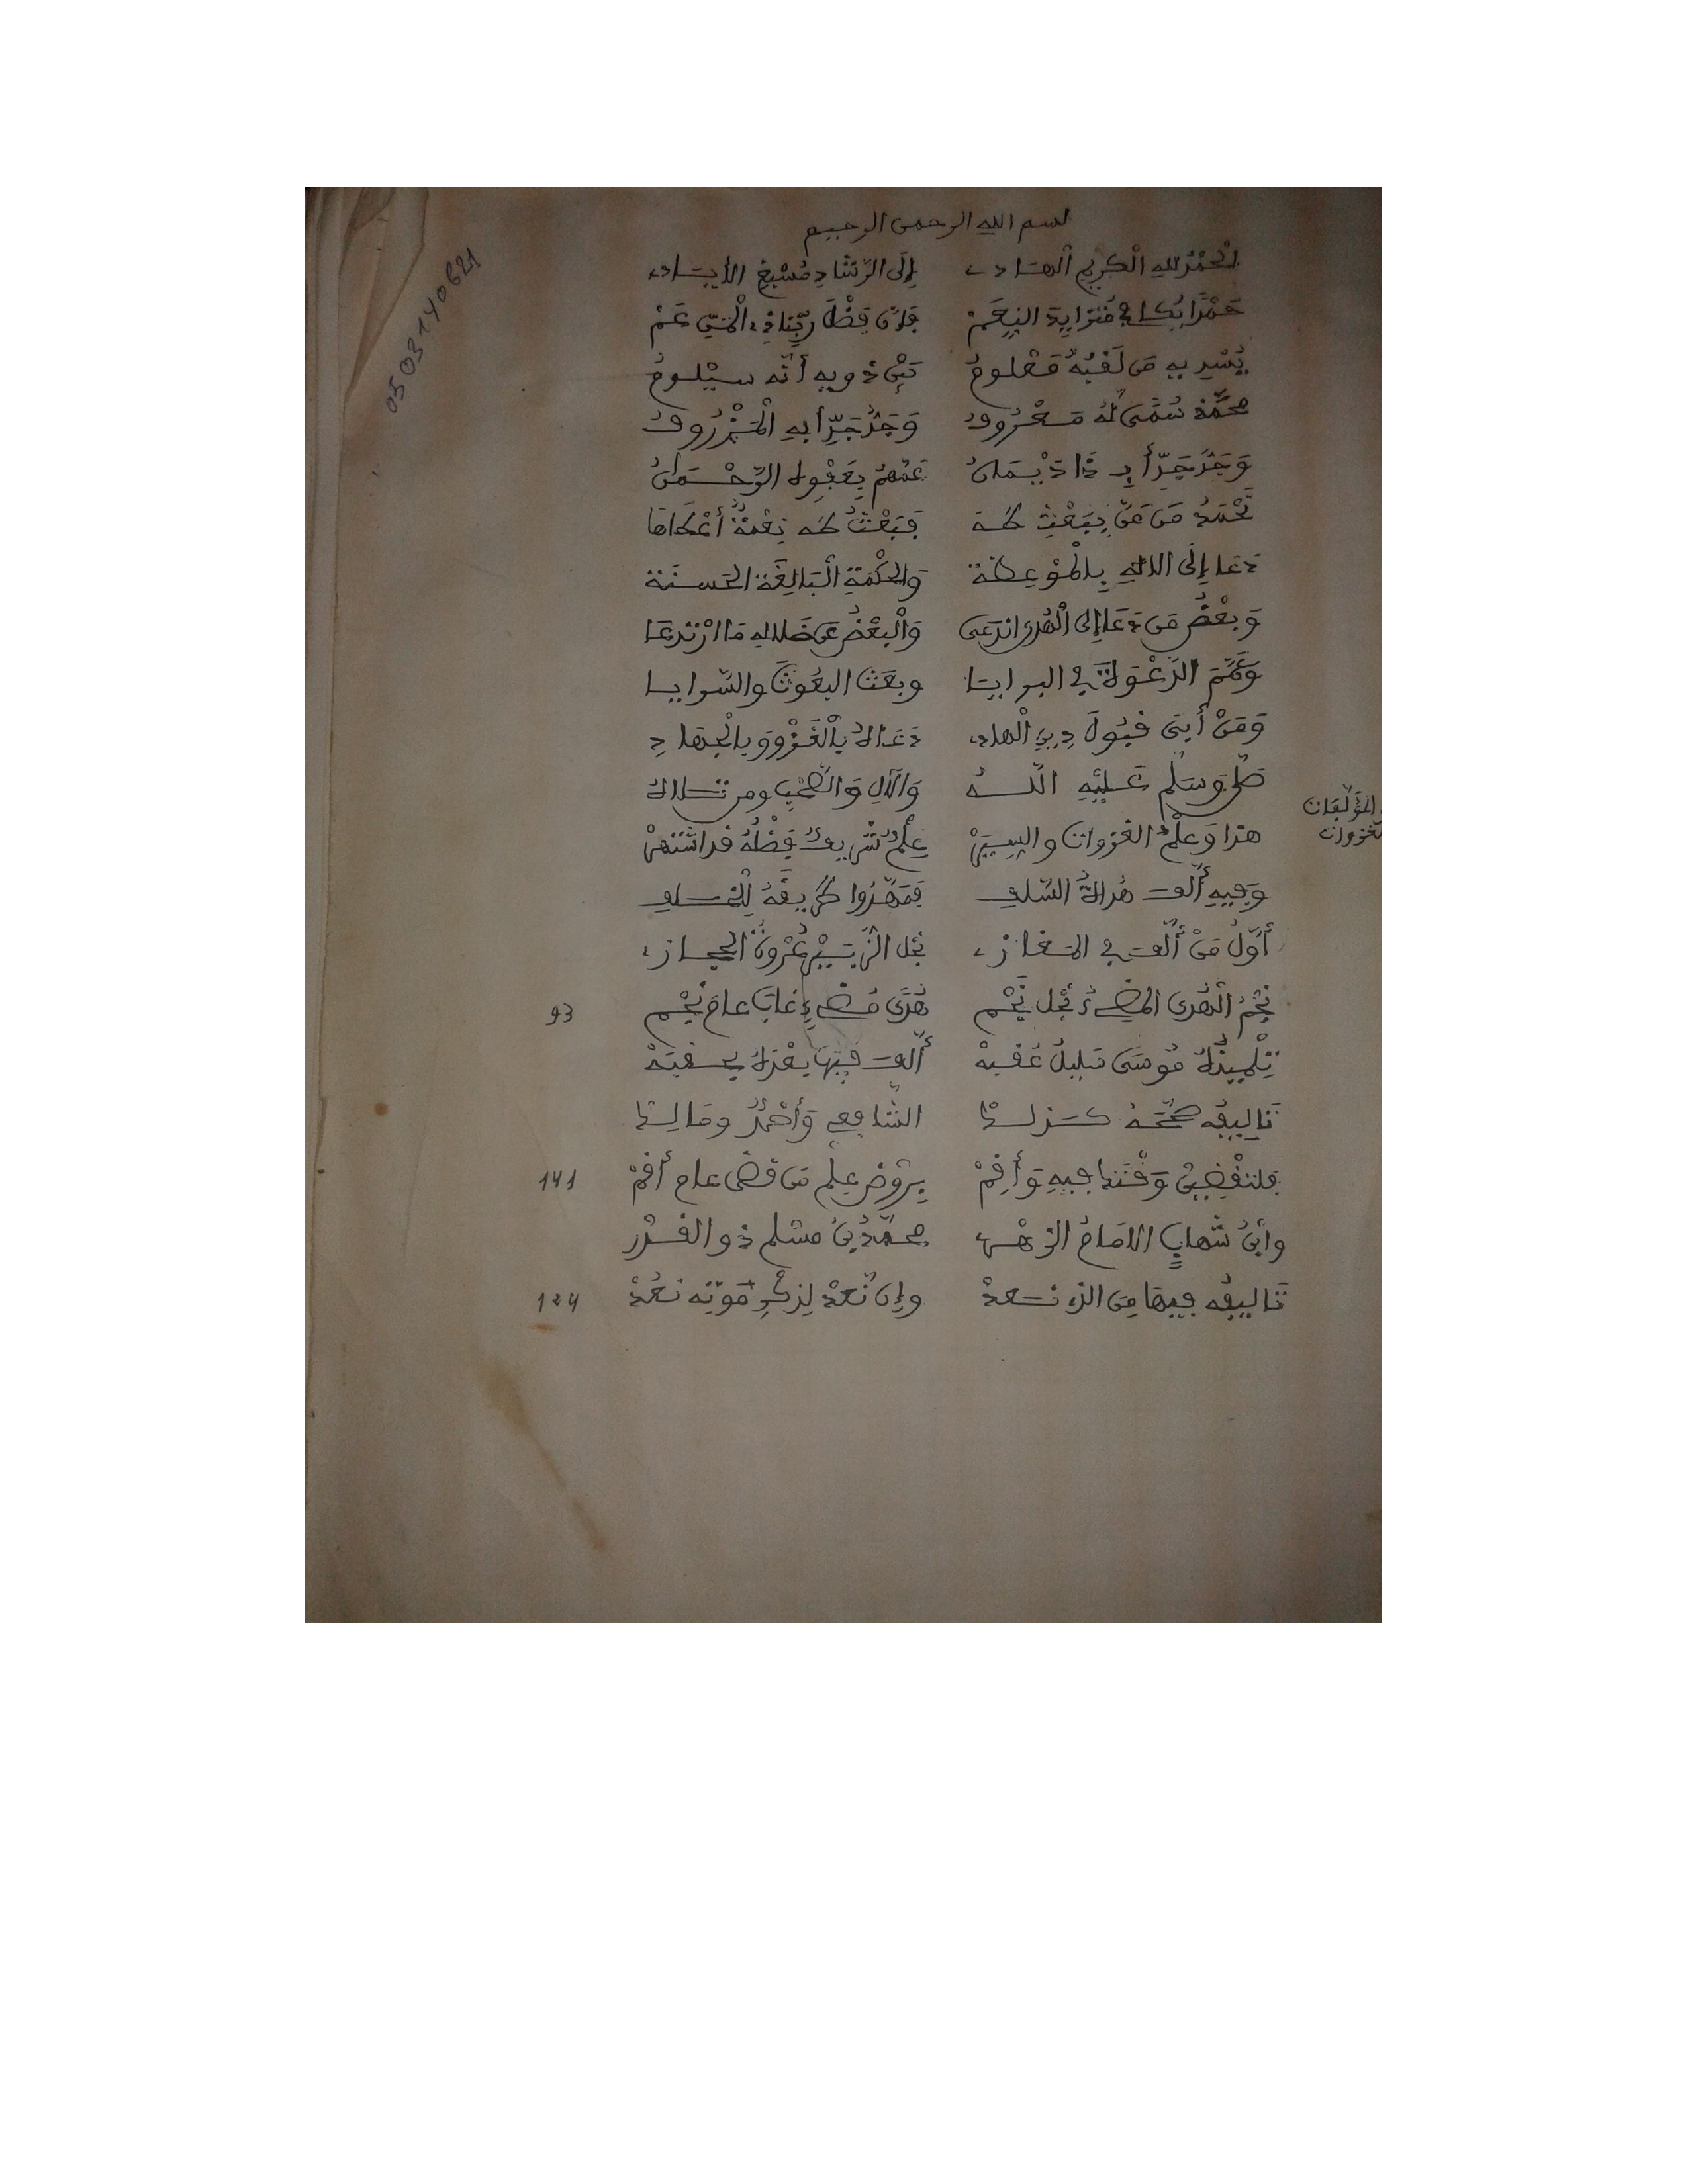 بسم الله الرحمن الرحيم
الْحَمْدُ لِلهِ الْكَرِيمِ الْهَادِي إِلَى الرَّشَادِ مُسْبِغِ الْأَيَادِي
حَمْدًا يُكَافِي مُتَزَايِدَ النِّعَمْ فَإِنَّ فَضْلَ رَبِّنَا ذِي الْمَنِّ عَمْ
يُسْدِيهِ مَن لَقَبُهُ مَعْلُومُ بَيْنَ ذَوِيهِ أَنَّهُ
مُحَمَّدٌ سُمًى لَهُ مَعْرُوفُ وَجَدُّ جَدِّ أَبِهِ
وَجَدُّ جَدِّ أَبِ ذَا عَنْهُمْ بِعَفْوِهِ الرَّحْمَانُ
نَحْمَدُ مَن مَنَّ بِبَعْثِ طَهَ فَبَعْثُ طَهَ نِعْمَةٌ أَعْطَاهَا
دَعَا إِلَى الالهِ بِالْمَوْعِظَة وَالْحِكْمَةِ الْبَالِغَةِ الْحَسَنَة
وَبَعْضُ مَن دَعَا إِلَى الْهُدَى ادَّعَى وَالْبَعْضُ عَن ضَلالِهِ مَا ارْتَدَعَا
وَعَمَّمَ الدَّعْوَةَ فِي البرايا وبَعَثَ البُعُوثَ والسَّرايا
وَمَنْ أَبَى قَبُولَ دِينِ الْهادي دَعَاهُ بِالْغَزْوِ وَبِالْجِهَادِ
صَلَّى وَسَلَّم عَلَيْهِ اللَّهُ وَالآلِ وَالصَّحْبِ ومن تَلاهُ
المُؤَلِّفان
الغزوات
هذا وَعِلْمُ الغزوات والسِّيَرْ عِلْمٌ شَرِيفٌ فَضْلُهُ قد اشْتَهَرْ
وَفِيهِ أَلَّفَ هُدَاةُ السَّلَفِ فَمَهَّدُوا طَرِيقَهُ لِلْخَلَفِ
أَوَّلُ مَنْ أَلَّفَ فِي الْمَغَازِي نَجْلُ الزُّبَيْرِ عُرْوَةُ الحِجَازِي
نَجْمُ الْهُدَى الْمُضِيءُ نَجْلُ نَجْمِ هُدًى مُضِيءٍ غابَ عامَ نَجْمِ 93
تِلْمِيذُهُ مُوسَى سَلِيلُ عُقْبَهْ أَلَّفَ فِيهَا بَعْدَهُ
تَأْلِيفُه صَحَّحَهُ كَذَلِكَا الشَّافِعِي وَأَحْمَدٌ وَمَالِكَا
وَقْتَنا فِيهِ وَأَقِمْ بِرَوْضِ عِلْمِ مَن قَضَى عام أَقِمْ 141
وابْنُ شِهابٍ الامَامُ الزُّهْرِي مُحَمَّدُ بْنُ مسْلِمٍ ذو القَدْرِ
تَأْلِيفُه فِيهَا مِنَ الذي نَعُدْ وإِن نَعُدْ لِذِكْرِ مَوْتِه نَعُدْ 124
0503140621